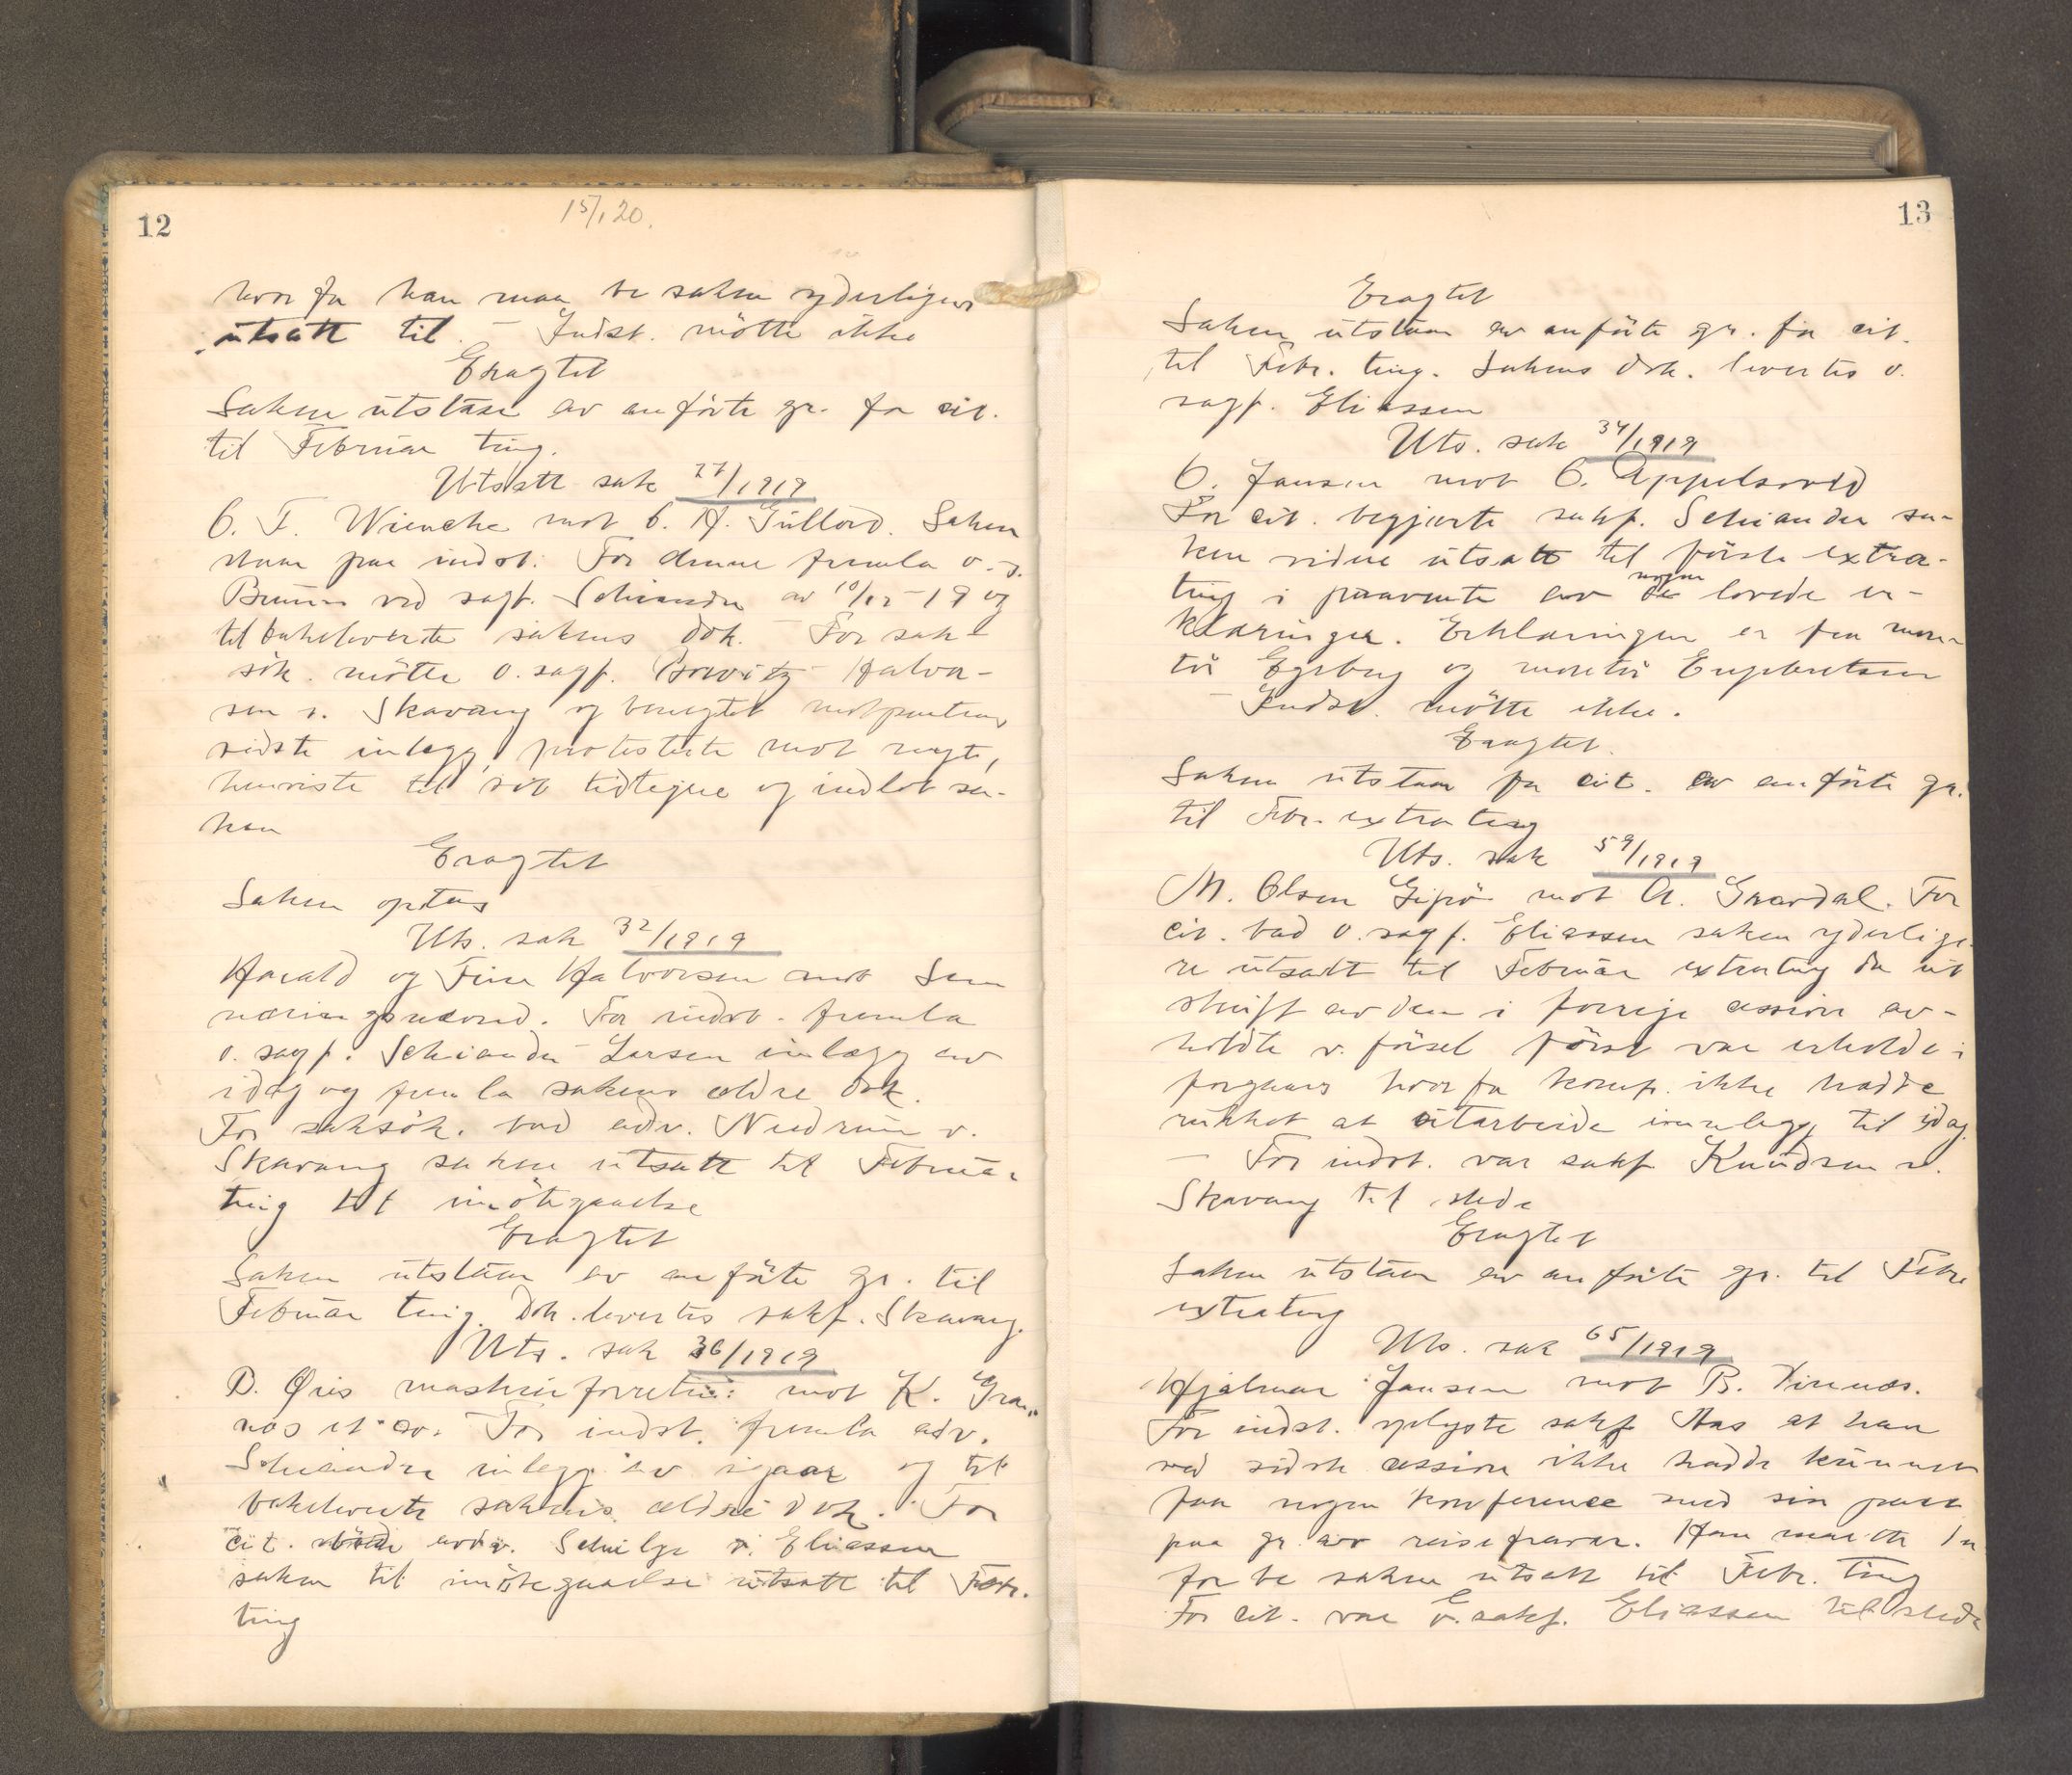 12
15/1 20.
hvorfor han maa be saken yderligere
utsatt til. – Indst. mötte ikke
Eragtet
Saken utstaar av anförte gr. for cit.
til Februar ting.
Utsatt sak 27/1919
C. F. Wiencke mot C. A. Gullord. Saken
staar paa indst. For denne fremla o.r.s.
Bruun ved sagf. Schiander av 10/12 – 19 og
tilbakeleverte sakens dok. – For sak-
sök. mötte o. sagf. Borvitz – Halvor-
sen v. Skavang og benegtet motpartens
sidste inlegg, protesterte mot nogte,
henviste til sit tidligere og indlot sa-
ken
Eragtet
Saken optas
Uts. sak 32/1919
Harald og Fine Halvorsen mot Sem
næringsnævnd. For indst. fremla
o. sagf. Schiander Larsen inlegg av
idag og fremla sakens ældre dok.
For saksök. bad adv. Nedrum v.
Skavang saken utsatt til Februar
ting til imötegaaelse
Eragtet
Saken utstaar av anförte gr. til
Februar ting. Dok. levertes sakf. Skavang.
Uts. sak 36/1919
D. Öies maskinforretn: mot K. Gran-
nos et co. For indst. fremla adv.
Schiander inlegg av igaar og til
bakeleverte sakens ældre dok. For
cit. advo. Schilge v. Eliassen
saken til imötegaaelse utsatt til Febr.
ting
13
Eragtet
Saken utstaar av anförte gr. for cit.
til Febr. ting. Sakens dok. levertes o.
sagf. Eliassen
Uts. sak 34/1919
O. Jansen mot C. Appelsvold
For cit. begjærte sakf. Schiander sa-
ken videre utsatt til förste extra-
ting i paavente av nogen lovede er-
klæringer. Erklæringen er fra mon-
tör Egeberg og montör Engebretsen
– Indst. mötte ikke.
Eragtet.
Saken utstaar for cit. av anförte gr.
til Febr. extrating
Uts. sak 59/1919
M. Olsen Gipö mot A. Gaardal. For
cit. bad o. sagf. Eliassen saken yderlige-
re utsatt til Februar extrating da ut
skrift av den i forrige session av-
holdte v. försel först var erholdt i
forgaars hvorfor komp. ikke hadde
rukket at utarbeide innlegg til idag.
– For indst. var sakf Knudsen v.
Skavang til stede
Eragtet
Saken utstaar av anförte gr. til Febr
extrating
Uts. sak 65/1919
Hjalmar Jansen mot B. Virnæs.
For indst. oplyste sakf Aas at han
ved sidste session ikke hadde kunnet
faa nogen konference med sin part
paa gr. av reisefravær. Han maatte der
for be saken utsatt til Febr. ting
For cit. var o. sakf. Eliassen tilstede